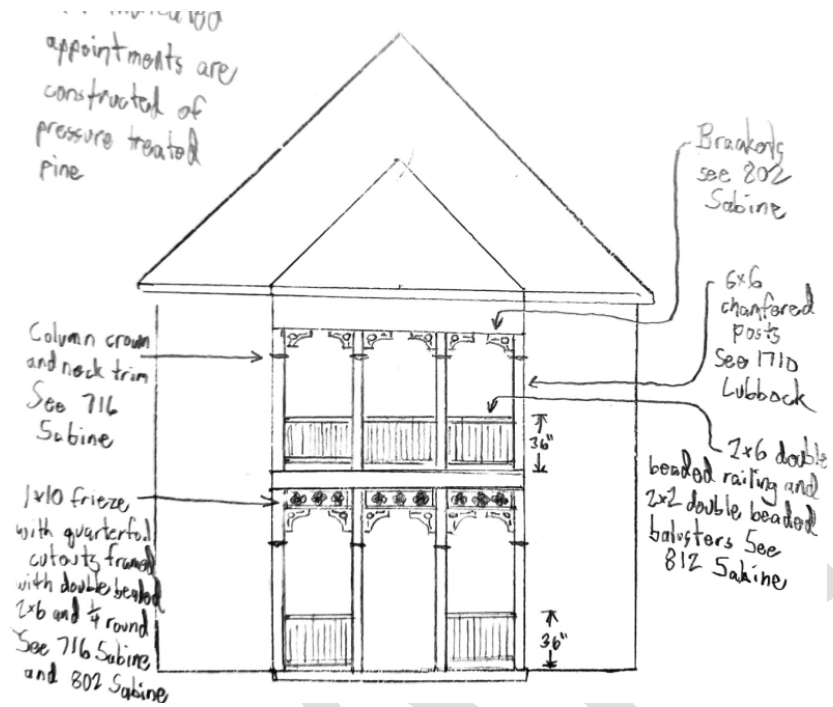 appointments are
constructed of
pressure treated
pine
Brackets
see 802
Sabine
6x6
chamfered
posts
See 1710
Lubbock
Column crown
and neck trim
See 716
Sabine
36"
2x6 double
beaded railing and
2x2 double beaded
balusters See
812 Sabine
1x10 frieze
with quarterfoil
cutouts framed
with double beaded
2x6 and 1/4 round
See 716 Sabine
and 802 Sabine
36"